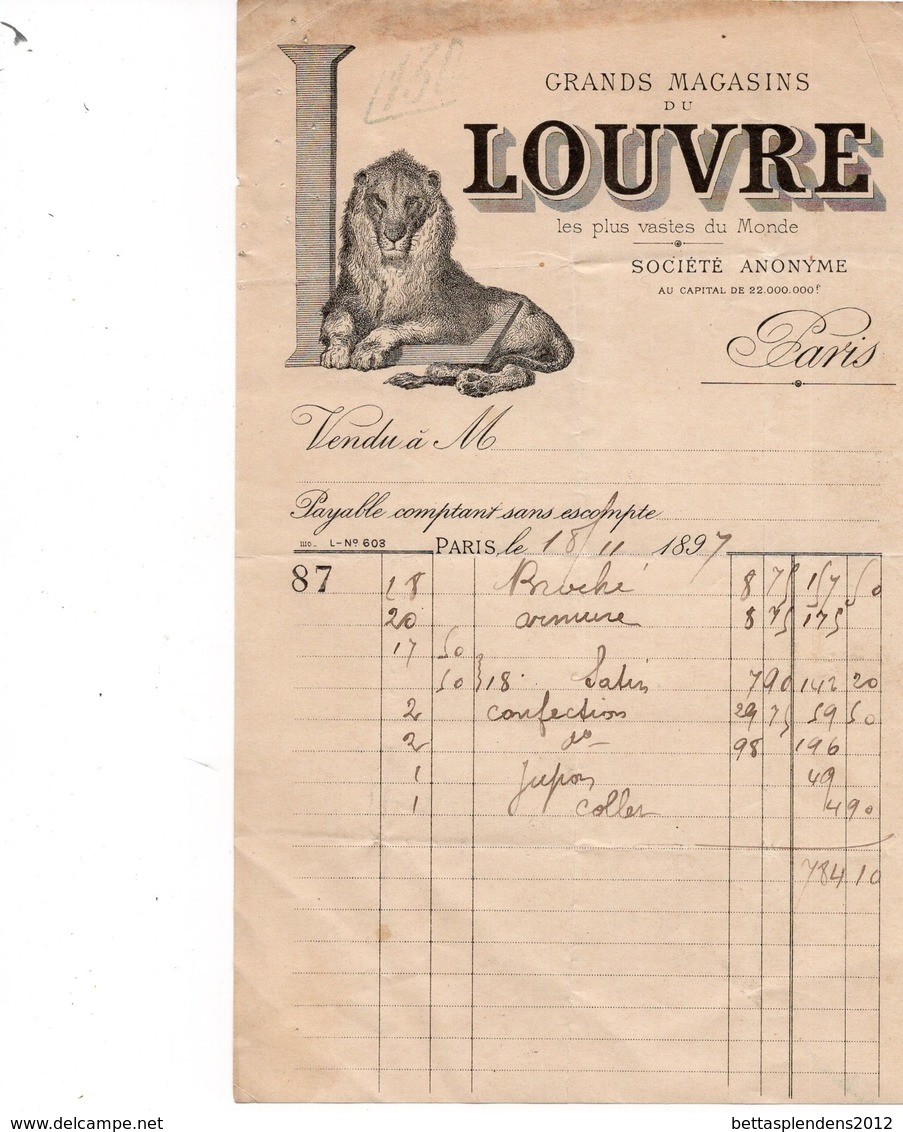 1150
GRANDS MAGASINS
DU
LOUVRE
les plus vastes du Monde
SOCIÉTÉ ANONYME
AU CAPITAL DE 22.000.000f.
Paris
Vendu à M
Payable comptant sans escompte
1110_ L-No 603 PARIS, le 18/11 1897
87 18 Broché 8 75 157 50
20 armure 8 75 175
17 50
50 } 18 Satin 7 90 142 20
2 confection 29 75 59 50
2 do 98 196
1 Jupon 49
1 Collet 4 90
784 10
delcampe.net
bettasplendens2012